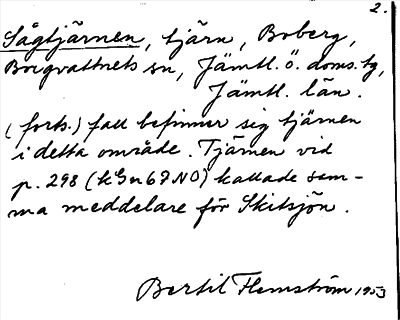 2.
Sågtjärnen, tjärn, Boberg,
Borgvattnets sn, Jämtl. ö. doms. tg,
Jämtl. län.
(forts.) fall befinner sig tjärnen
i detta område. Tjärnen vid
p. 298 (kGn67NO) kallade sam-
ma meddelare för Skitsjön.
Bertil Flemström 1953